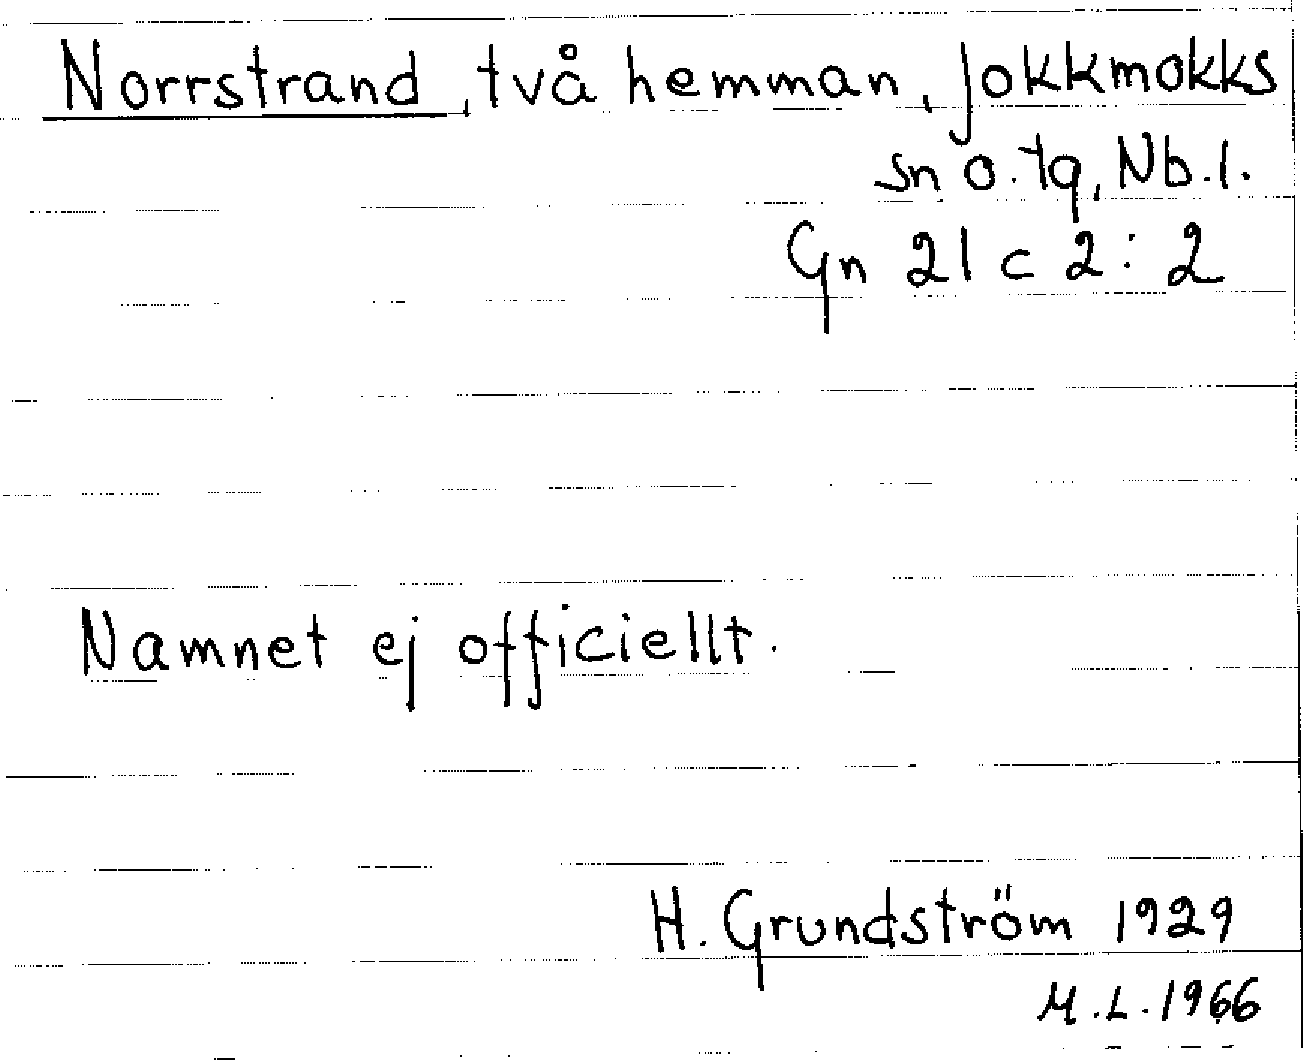 Norrstrand, två hemman, Jokkmokks
sn o. tg, Nb. l.
Gn 21 c 2:2
Namnet ej officiellt.
H. Grundström 1929
M.L. 1966